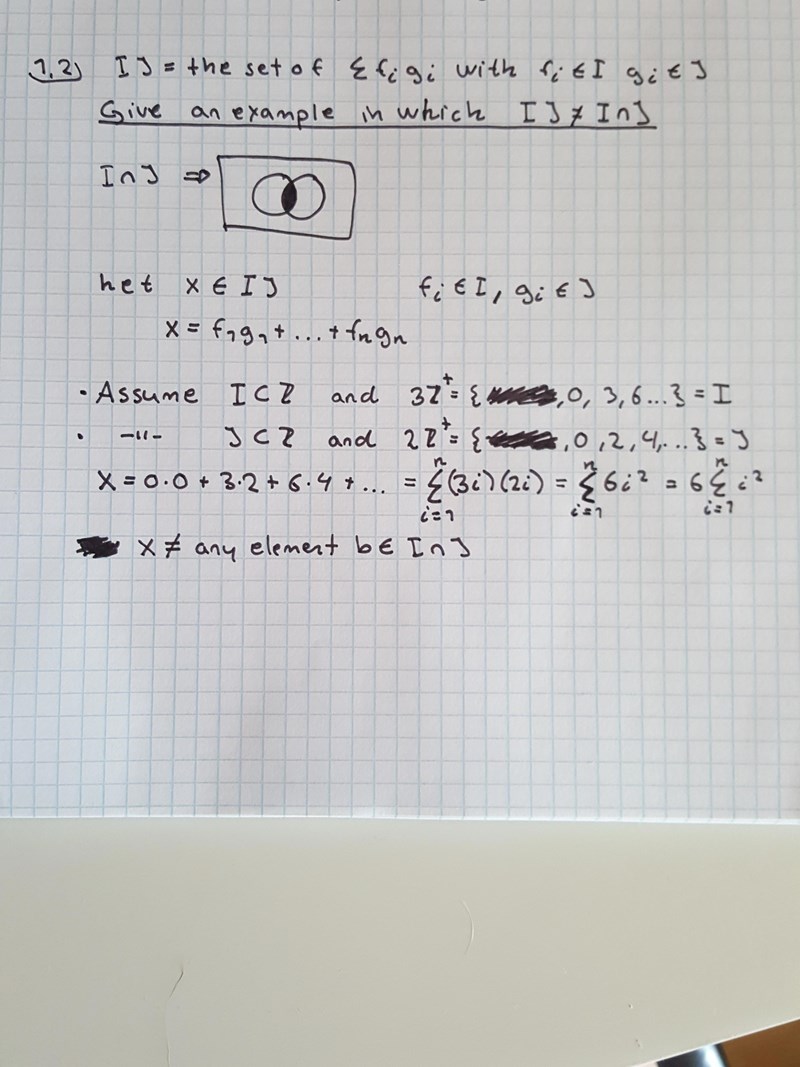 1.2) IJ = the set of Σ fᵢgᵢ with fᵢ ∈ I gᵢ ∈ J
Give an example in which IJ ≠ I∩J
I∩J ⇒
het x ∈ IJ fᵢ ∈ I, gᵢ ∈ J
x = f₁g₁ + ... + fₙgₙ
• Assume I ⊂ ℤ and 3ℤ⁺ = { , 0, 3, 6...} = I
• -"- J ⊂ ℤ and 2ℤ⁺ = { , 0, 2, 4,...} = J
x = 0·0 + 3·2 + 6·4 + ... = Σⁿᵢ₌₁ (3i)(2i) = Σⁿᵢ₌₁ 6i² = 6 Σⁿᵢ₌₁ i²
x ≠ any element b ∈ I∩J